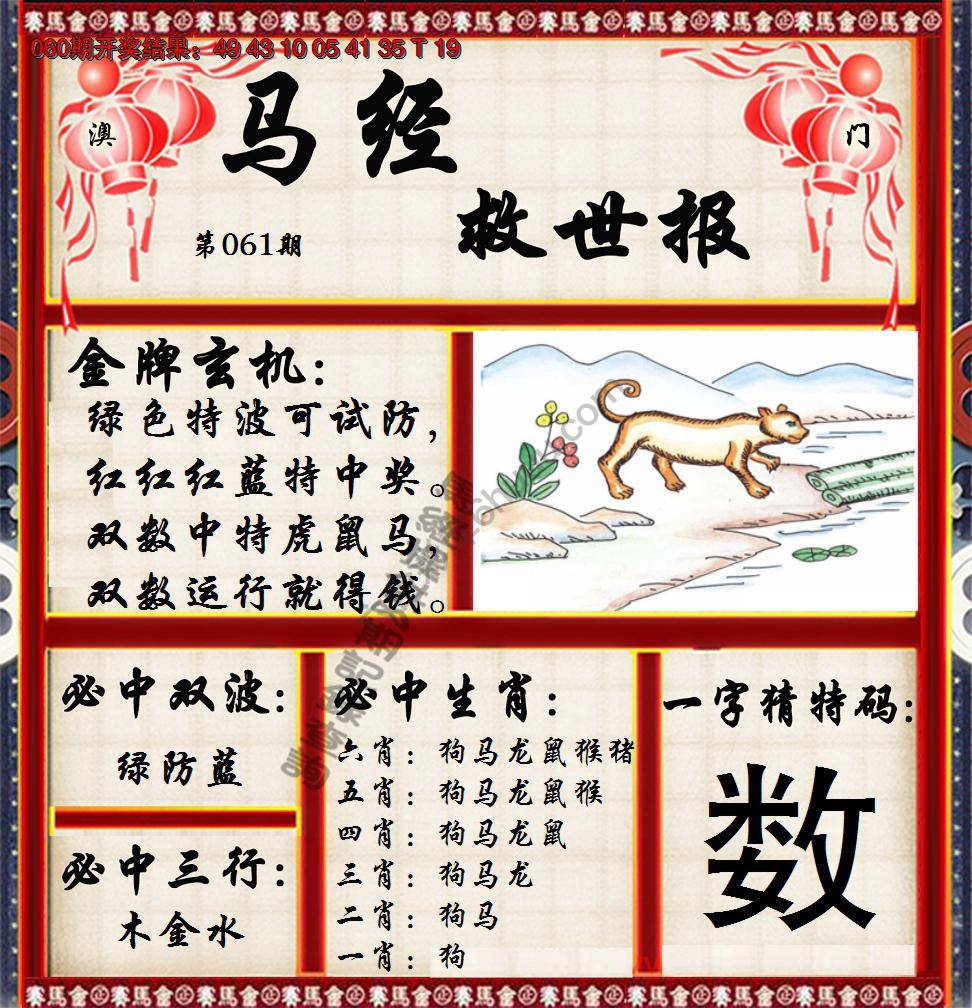 060期开奖结果：49 43 10 05 41 35 T 19
澳
门
马经
救世报
第061期
金牌玄机：
绿色特波可试防，
红红红蓝特中奖。
双数中特虎鼠马，
双数运行就得钱。
必中双波：
绿防蓝
必中三行：
木金水
必中生肖：
六肖：狗马龙鼠猴猪
五肖：狗马龙鼠猴
四肖：狗马龙鼠
三肖：狗马龙
二肖：狗马
一肖：狗
一字猜特码：
数